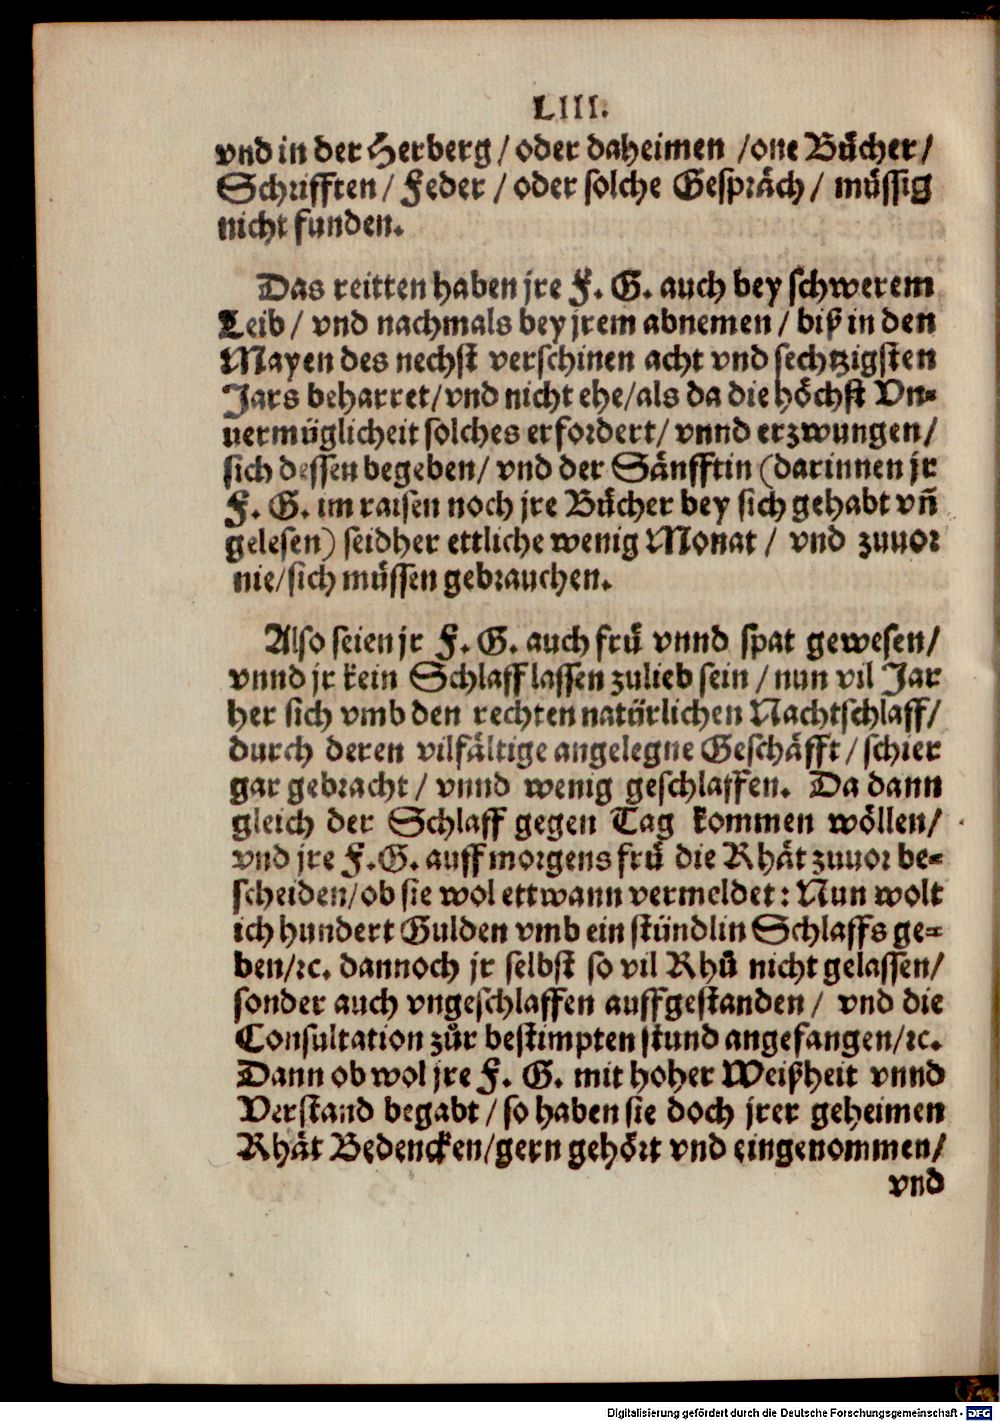 LIII.
vnd in der Herberg / oder daheimen / one Bůcher /
Schrifften / Feder / oder solche Gespräch / müssig
nicht funden.
Das reitten haben jre F. G. auch bey schwerem
Leib / vnd nachmals bey jrem abnemen / biß in den
Mayen des nechst verschinen acht vnd sechtzigsten
Jars beharret / vnd nicht ehe / als da die höchst Vn-
uermüglicheit solches erfordert / vnnd erzwungen /
sich dessen begeben / vnd der Sänfftin (darinnen jr
F. G. im raisen noch jre Bůcher bey sich gehabt vñ
gelesen) seidher ettliche wenig Monat / vnd zuuor
nie / sich müssen gebrauchen.
Also seien jr F. G. auch frů vnnd spat gewesen /
vnnd jr kein Schlaff lassen zulieb sein / nun vil Jar
her sich vmb den rechten natürlichen Nachtschlaff /
durch deren vilfältige angelegne Geschäfft / schier
gar gebracht / vnnd wenig geschlaffen. Da dann
gleich der Schlaff gegen Tag kommen wöllen /
vnd jre F. G. auff morgens frů die Rhät zuuor be-
scheiden / ob sie wol ettwann vermeldet: Nun wolt
ich hundert Gulden vmb ein stündlin Schlaffs ge-
ben / ꝛc. dannoch jr selbst so vil Rhů nicht gelassen /
sonder auch vngeschlaffen auffgestanden / vnd die
Consultation zůr bestimpten stund angefangen / ꝛc.
Dann ob wol jre F. G. mit hoher Weißheit vnnd
Verstand begabt / so haben sie doch jrer geheimen
Rhät Bedencken / gern gehört vnd eingenommen /
vnd
Digitalisierung gefördert durch die Deutsche Forschungsgemeinschaft - DFG